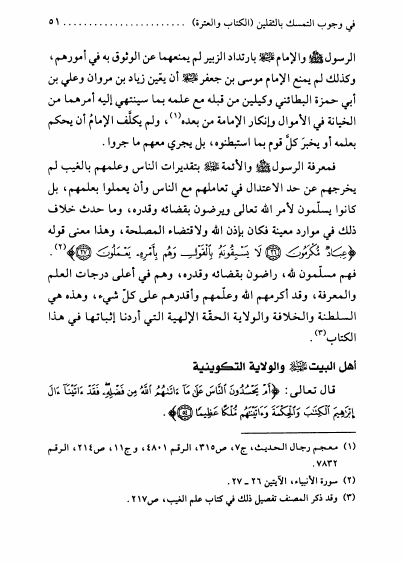 في وجوب التمسك بالثقلين (الكتاب والعترة) ........................ ٥١
الرسول ﷺ والإمام ﵇ بارتداد الزبير لم يمنعهما عن الوثوق به في أمورهم،
وكذلك لم يمنع الإمام موسى بن جعفر ﵇ أن يعّين زياد بن مروان وعلي بن
أبي حمزة البطائني وكيلين من قبله مع علمه بما سينتهي إليه أمرهما من
الخيانة في الأموال وإنكار الإمامة من بعده(١)، ولم يكلّف الإمامُ أن يحكم
بعلمه أو يخبرَ كلَّ قوم بما استبطنوه، بل يجري معهم ما جروا.
فمعرفة الرسول ﷺ والأئمة ﵈ بتقديرات الناس وعلمهم بالغيب لم
يخرجهم عن حد الاعتدال في تعاملهم مع الناس وأن يعملوا بعلمهم، بل
كانوا يسلّمون لأمر الله تعالى ويرضون بقضائه وقدره، وما حدث خلاف
ذلك في موارد معينة فكان بإذن الله ولاقتضاء المصلحة، وهذا معنى قوله
﴿عِبَادٌ مُّكْرَمُونَ ۝٢٦ لَا يَسْبِقُونَهُ بِالْقَوْلِ وَهُم بِأَمْرِهِ يَعْمَلُونَ ۝٢٧﴾(٢).
فهم مسلّمون لله، راضون بقضائه وقدره، وهم في أعلى درجات العلم
والمعرفة، وقد أكرمهم الله وعلّمهم وأقدرهم على كلّ شيء، وهذه هي
السلطنة والخلافة والولاية الحقّة الإلهية التي أردنا إثباتها في هذا
الكتاب(٣).
أهل البيت ﵈ والولاية التكوينية
قال تعالى: ﴿أَمْ يَحْسُدُونَ النَّاسَ عَلَىٰ مَا ءَاتَىٰهُمُ اللَّهُ مِن فَضْلِهِ فَقَدْ ءَاتَيْنَا ءَالَ
إِبْرَٰهِيمَ الْكِتَٰبَ وَالْحِكْمَةَ وَءَاتَيْنَٰهُم مُّلْكًا عَظِيمًا ۝٥٤﴾.
(١) معجم رجال الحديث، ج٧، ص٣١٥، الرقم ٤٨٠١، و ج١١، ص٢١٤، الرقم
٧٨٣٢.
(٢) سورة الأنبياء، الآيتين ٢٦ ـ ٢٧.
(٣) وقد ذكر المصنف تفصيل ذلك في كتاب علم الغيب، ص٢١٧.